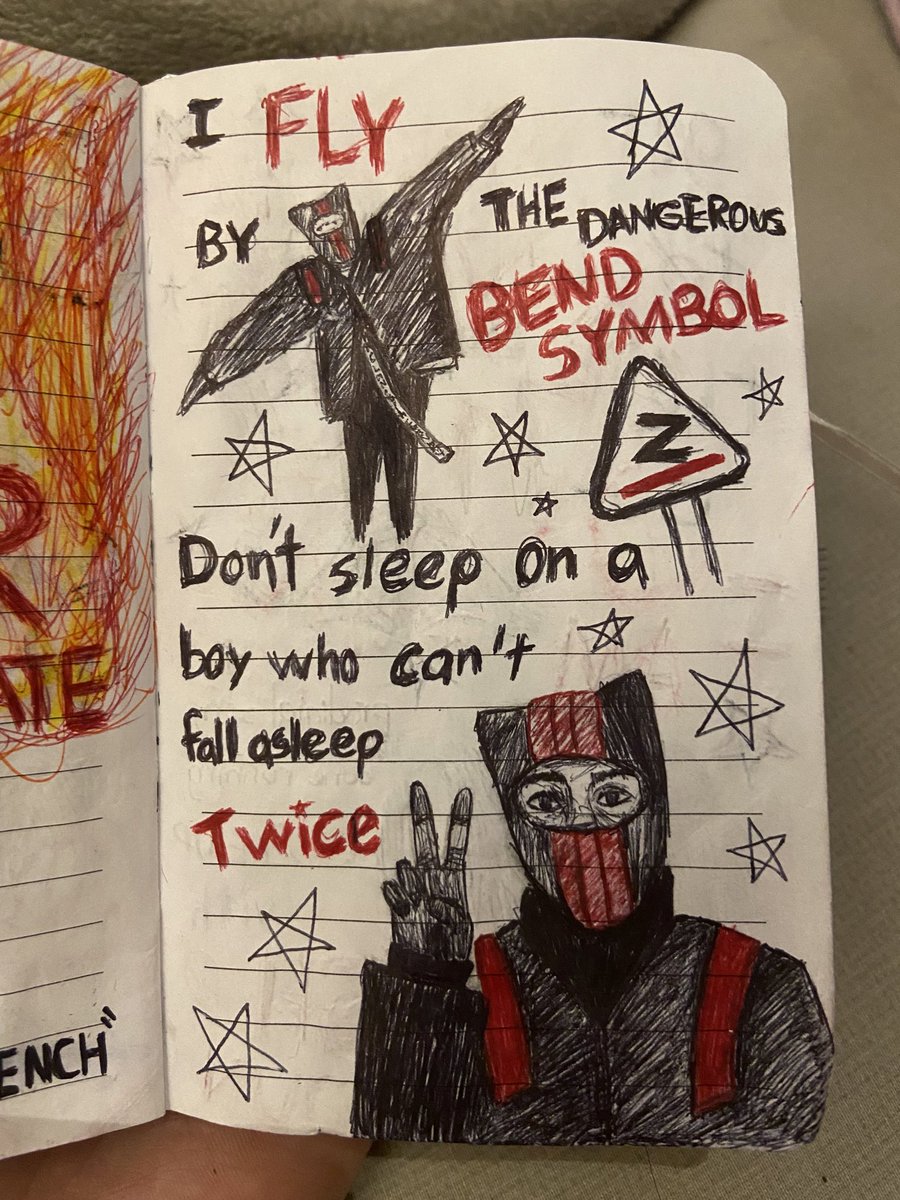 I FLY
BY THE DANGEROUS
BEND
SYMBOL
Z
Don't sleep on a
boy who can't
fall asleep
Twice
ATE
ENCH"